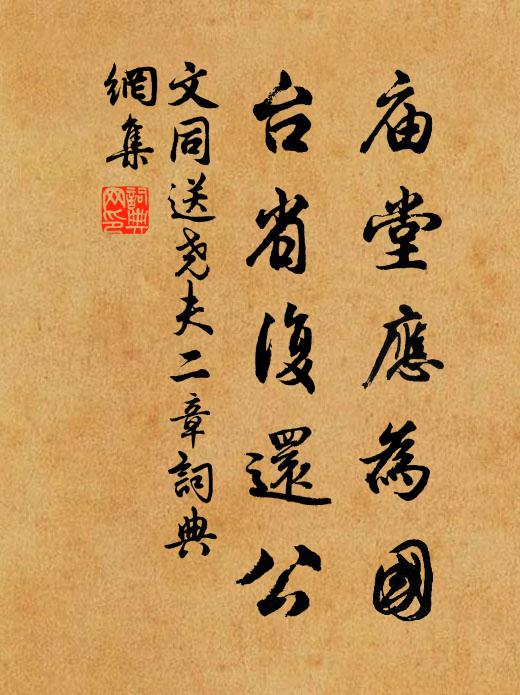 庙堂應為國
台省復還公
文同送尧夫二章詞典
網集
詞典網印